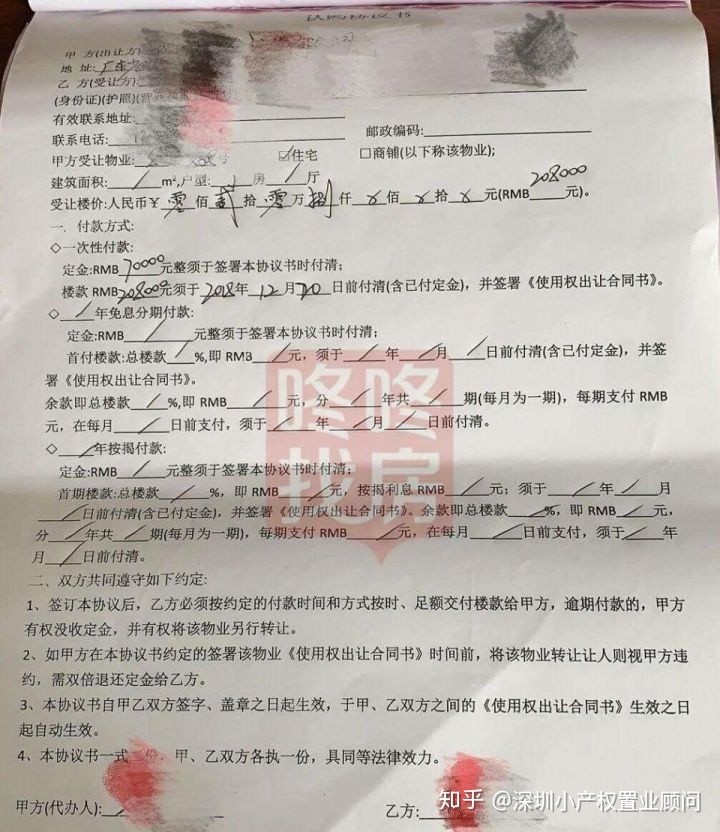 认购协议书
甲 方(出让方)
地 址:广东
乙 方(受让方)
(身份证)(护照)
有效联系地址:
联系电话: 邮政编码:
甲方受让物业: ☑住宅 □商铺(以下称该物业);
建筑面积: / m²,户型: 1 房 / 厅
受让楼价:人民币¥ 零 佰 贰 拾 零 万 捌 仟 x 佰 x 拾 x 元(RMB 208000 元)。
一. 付款方式:
◇一次性付款:
定金:RMB 70000 元整须于签署本协议书时付清;
楼款 RMB 208000 元须于 2018 年 12 月 20 日前付清(含已付定金), 并签署《使用权出让合同书》。
◇ / 年免息分期付款:
定金:RMB / 元整须于签署本协议书时付清;
首付楼款:总楼款 / %,即 RMB / 元, 须于 / 年 / 月 / 日前付清(含已付定金), 并签
署《使用权出让合同书》。
余款即总楼款 / %,即 RMB / 元, 分 / 年共 / 期(每月为一期), 每期支付 RMB
元, 在每月 / 日前支付, 须于 / 年 / 月 / 日前付清。
◇ / 年按揭付款:
定金:RMB / 元整须于签署本协议书时付清;
首期楼款:总楼款 / %, 即 RMB / 元, 按揭利息 RMB / 元; 须于 / 年 / 月
/ 日前付清(含已付定金), 并签署《使用权出让合同书》。余款即总楼款 / %, 即 RMB / 元,
分 / 年共 / 期(每月为一期), 每期支付 RMB / 元, 在每月 / 日前支付, 须于 / 年
月 / 日前付清。
二、双方共同遵守如下约定:
1、签订本协议后, 乙方必须按约定的付款时间和方式按时、足额交付楼款给甲方, 逾期付款的, 甲方
有权没收定金, 并有权将该物业另行转让。
2、如甲方在本协议书约定的签署该物业《使用权出让合同书》时间前, 将该物业转让让人则视甲方违
约, 需双倍退还定金给乙方。
3、本协议书自甲乙双方签字、盖章之日起生效, 于甲、乙双方之间的《使用权出让合同书》生效之日
起自动生效。
4、本协议书一式二份, 甲、乙双方各执一份, 具同等法律效力。
甲方(代办人): 乙方:
咚咚找房
知乎 @深圳小产权置业顾问